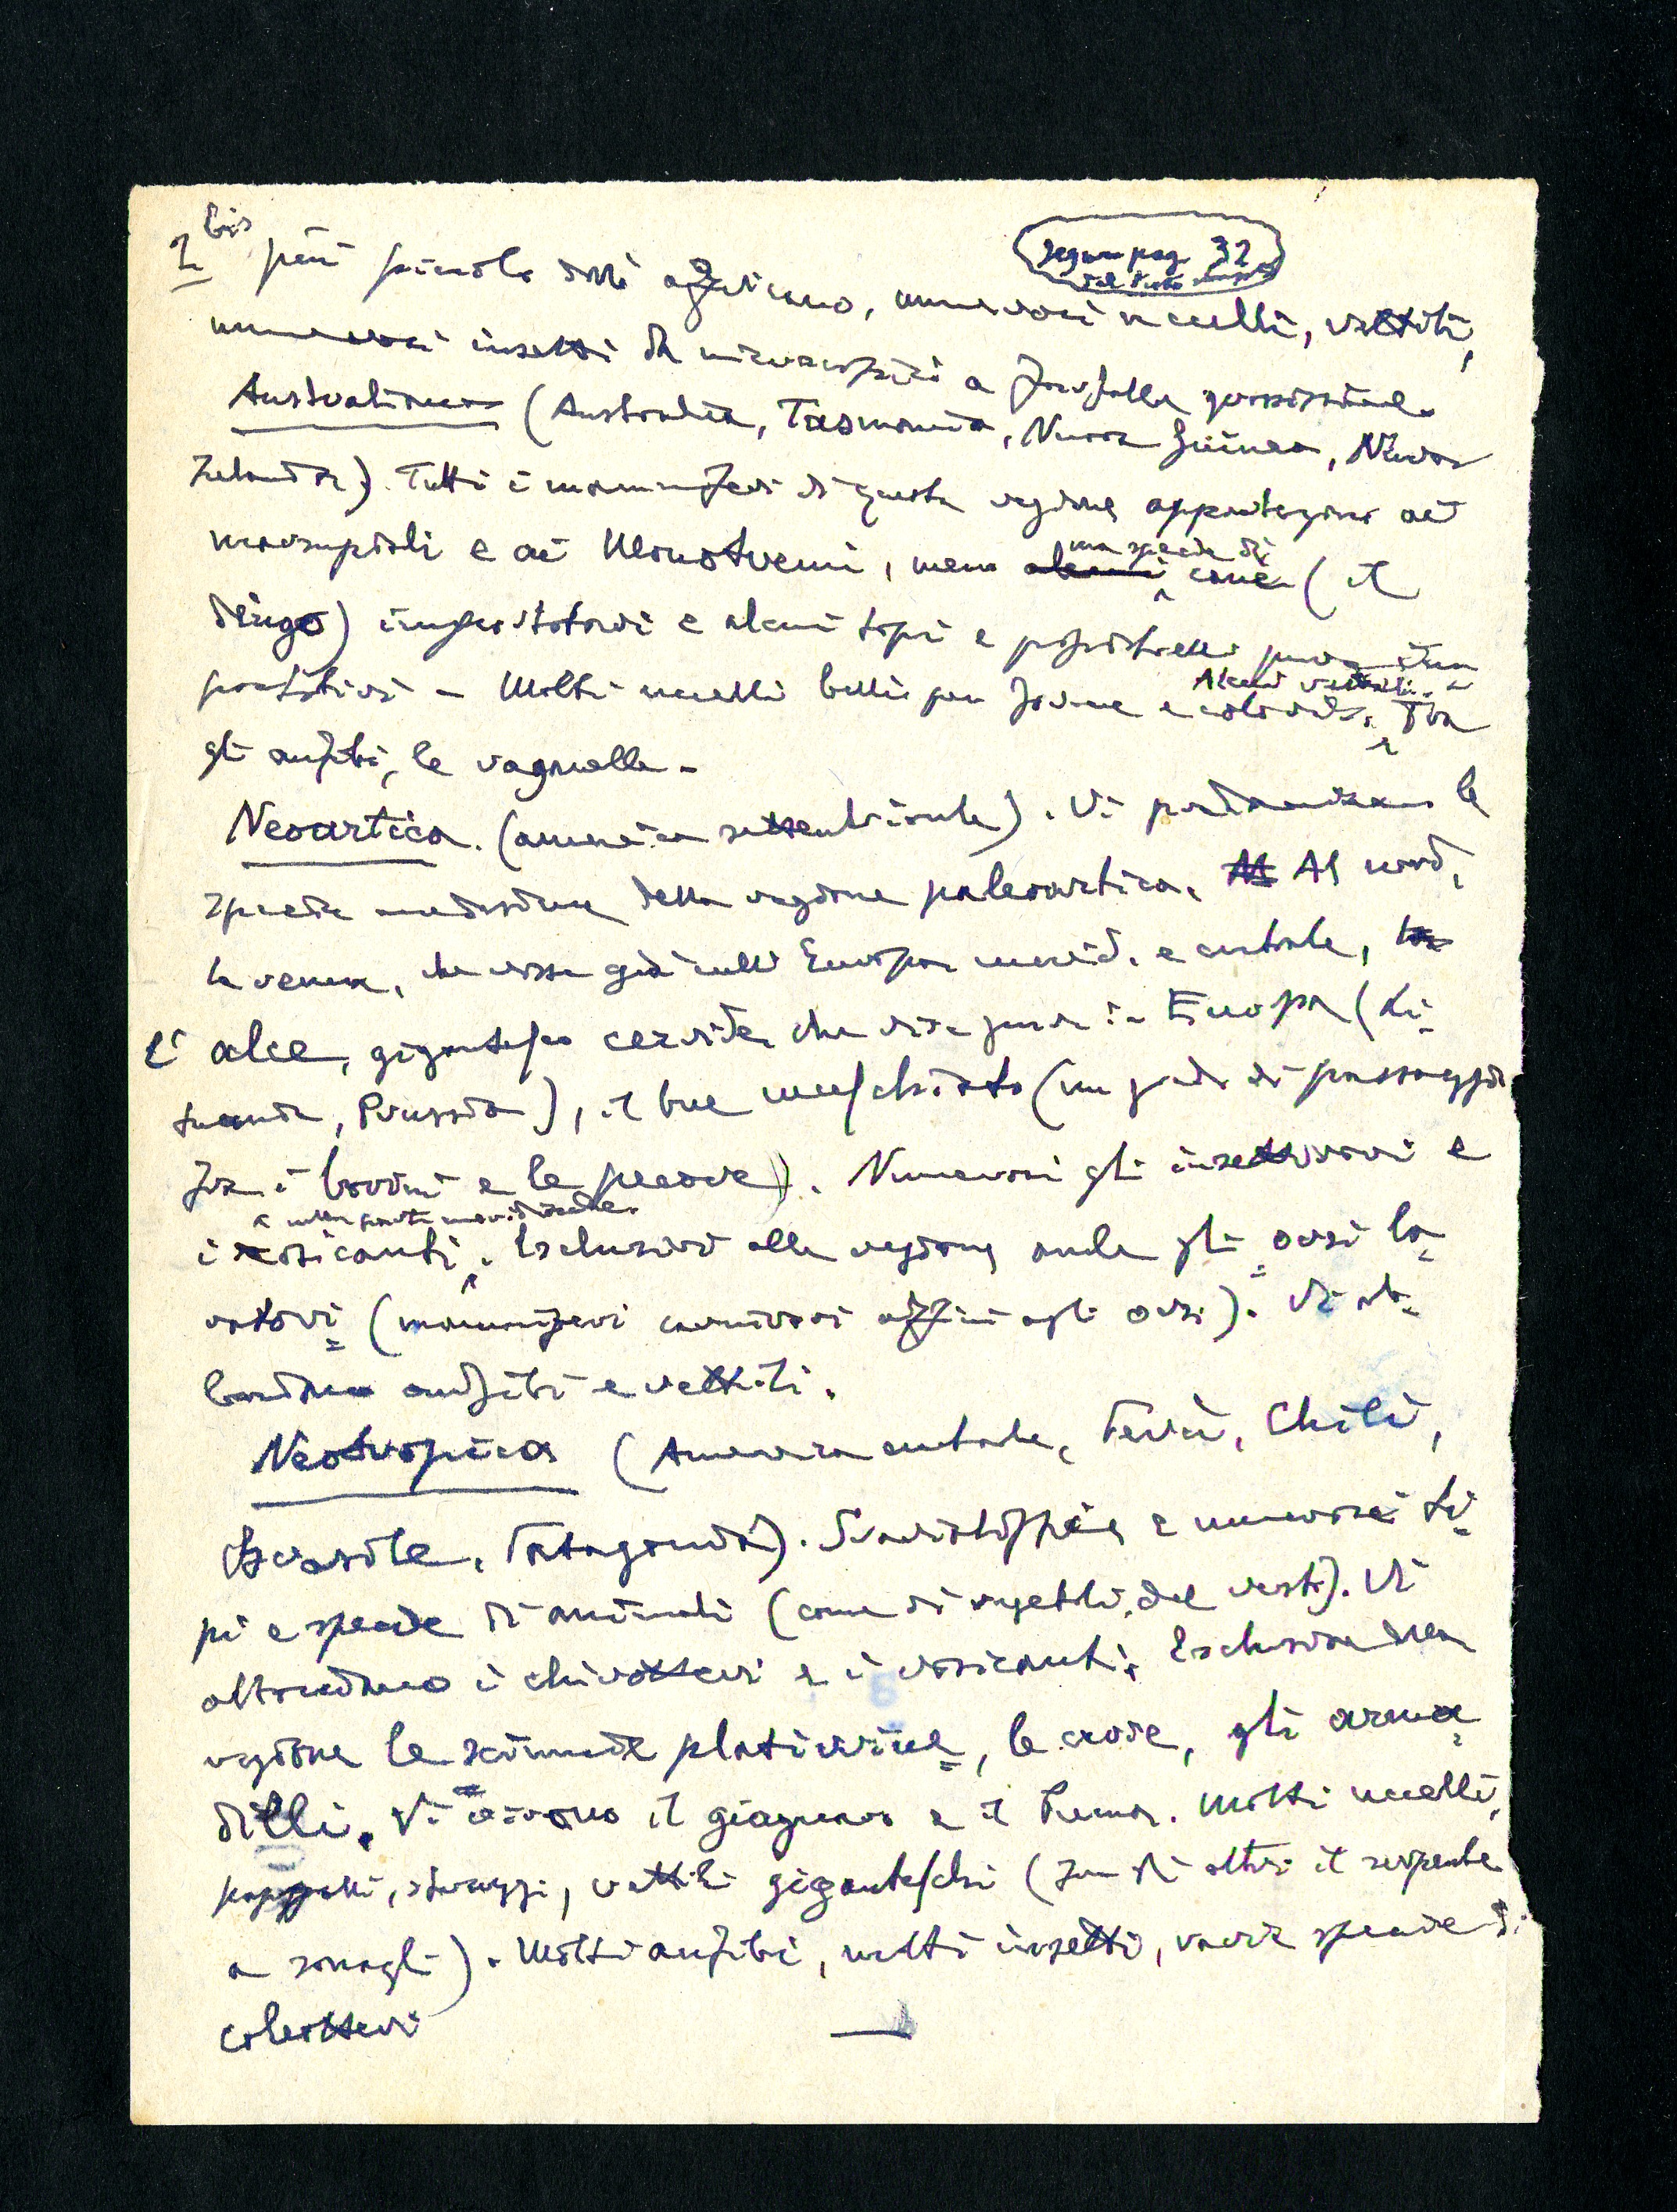 1 bis
segue pag. 32
del testo
più piccolo dell'africano, numerosi uccelli, rettili,
numerosi insetti da microscopici a farfalle grossissime.
Australiana (Australia, Tasmania, Nuova Guinea, Nuova
Zelanda). Tutti i mammiferi di questa regione appartengono ai
marsupiali e ai Monotremi, meno una specie di cane (il
dingo) importatovi e alcuni topi e pipistrelli pure
importativi - Molti uccelli belli per forme e colorito. Alcuni rettili. Tra
gli anfibi, le raganelle.
Neoartica. (america settentrionale). Vi predominano le
specie medesime della regione paleoartica. Al nord,
la renna, che visse già nell'Europa merid. e centrale,
l'alce, gigantesco cervide che vive pure in Europa (Li-
tuania, Prussia), il bue muschiato (un grado di passaggio
fra i bovini e le pecore). Numerosi gli insettivori e
i rosicanti, e nella parte meridionale. Esclusivi alla regione anche gli orsi la-
vatori (mammiferi carnivori affini agli orsi). Vi ab-
bondano anfibi e rettili.
Neotropica (America centrale, Perù, Chilì,
Brasile, Patagonia). Svariatissimi e numerosi ti-
pi e specie di animali (come di vegetali, del resto). Vi
abbondano i chirotteri e i rosicanti. Esclusive della
regione le scimmie platirrine, le cavie, gli arma-
dilli. Vi vivono il giaguaro e il Puma. Molti uccelli,
pappagalli, struzzi, rettili giganteschi (fra gli altri il serpente
a sonagli). Molti anfibi, molti insetti, varie specie di
coleotteri